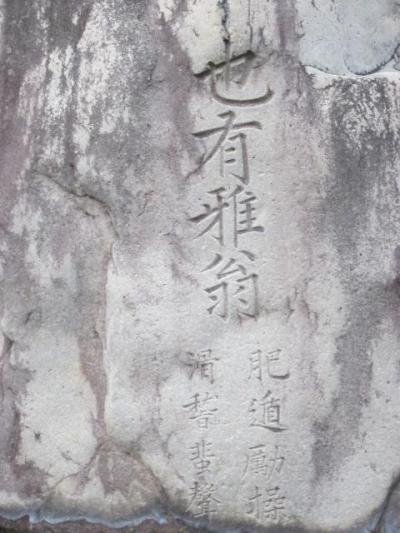 也有雅翁
肥遁勵操
滑稽蜚聲